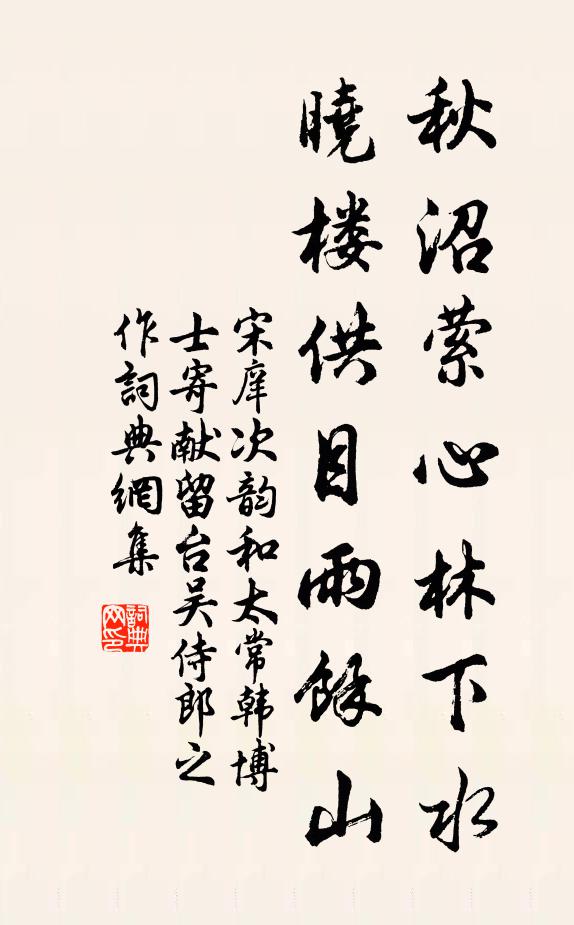 秋沼萦心林下水
曉楼供目雨餘山
宋庠次韵和太常韩博
士寄献留台吴侍郎之
作詞典網集
詞典網印